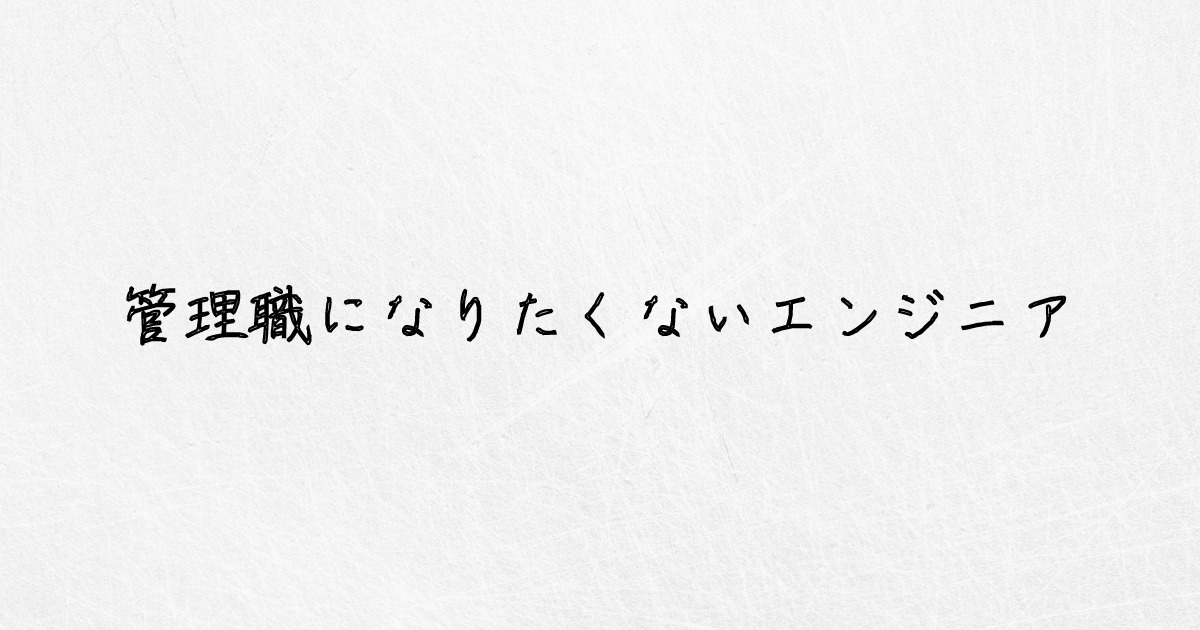 管理職になりたくないエンジニア